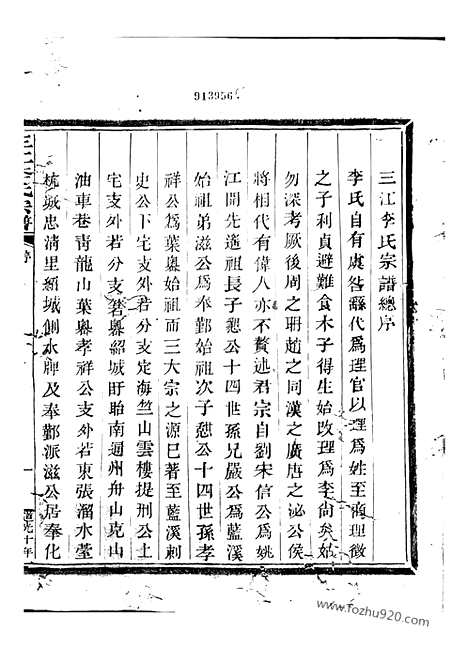 913956
三江李氏宗譜總序
李氏自有虞咎繇代爲理官以理爲姓至商理徵
之子利貞避難食木子得生始改理爲李尙矣姑
勿深考厥後周之珊趙之同漢之廣唐之泌公侯
將相代有偉人亦不贅述君宗自劉宋信公爲姚
江開先遙祖長子懇公十四世孫兄嚴公爲藍溪
始祖弟滋公爲奉鄞始祖次子懟公十四世孫孝
祥公爲葉嶴始祖而三大宗之源已著至藍溪刺
史公下宅支外若分支定海竺山雲樓提刑公上
宅支外若分支箬嶴紹城盱眙南通州舟山克山
油車巷靑龍山葉嶴孝祥公支外若東張溜水堂
杭城忠淸里頭城創水牌及奉鄞派滋公居奉化
三江李氏宗譜
序
一
www.fozhu920.com